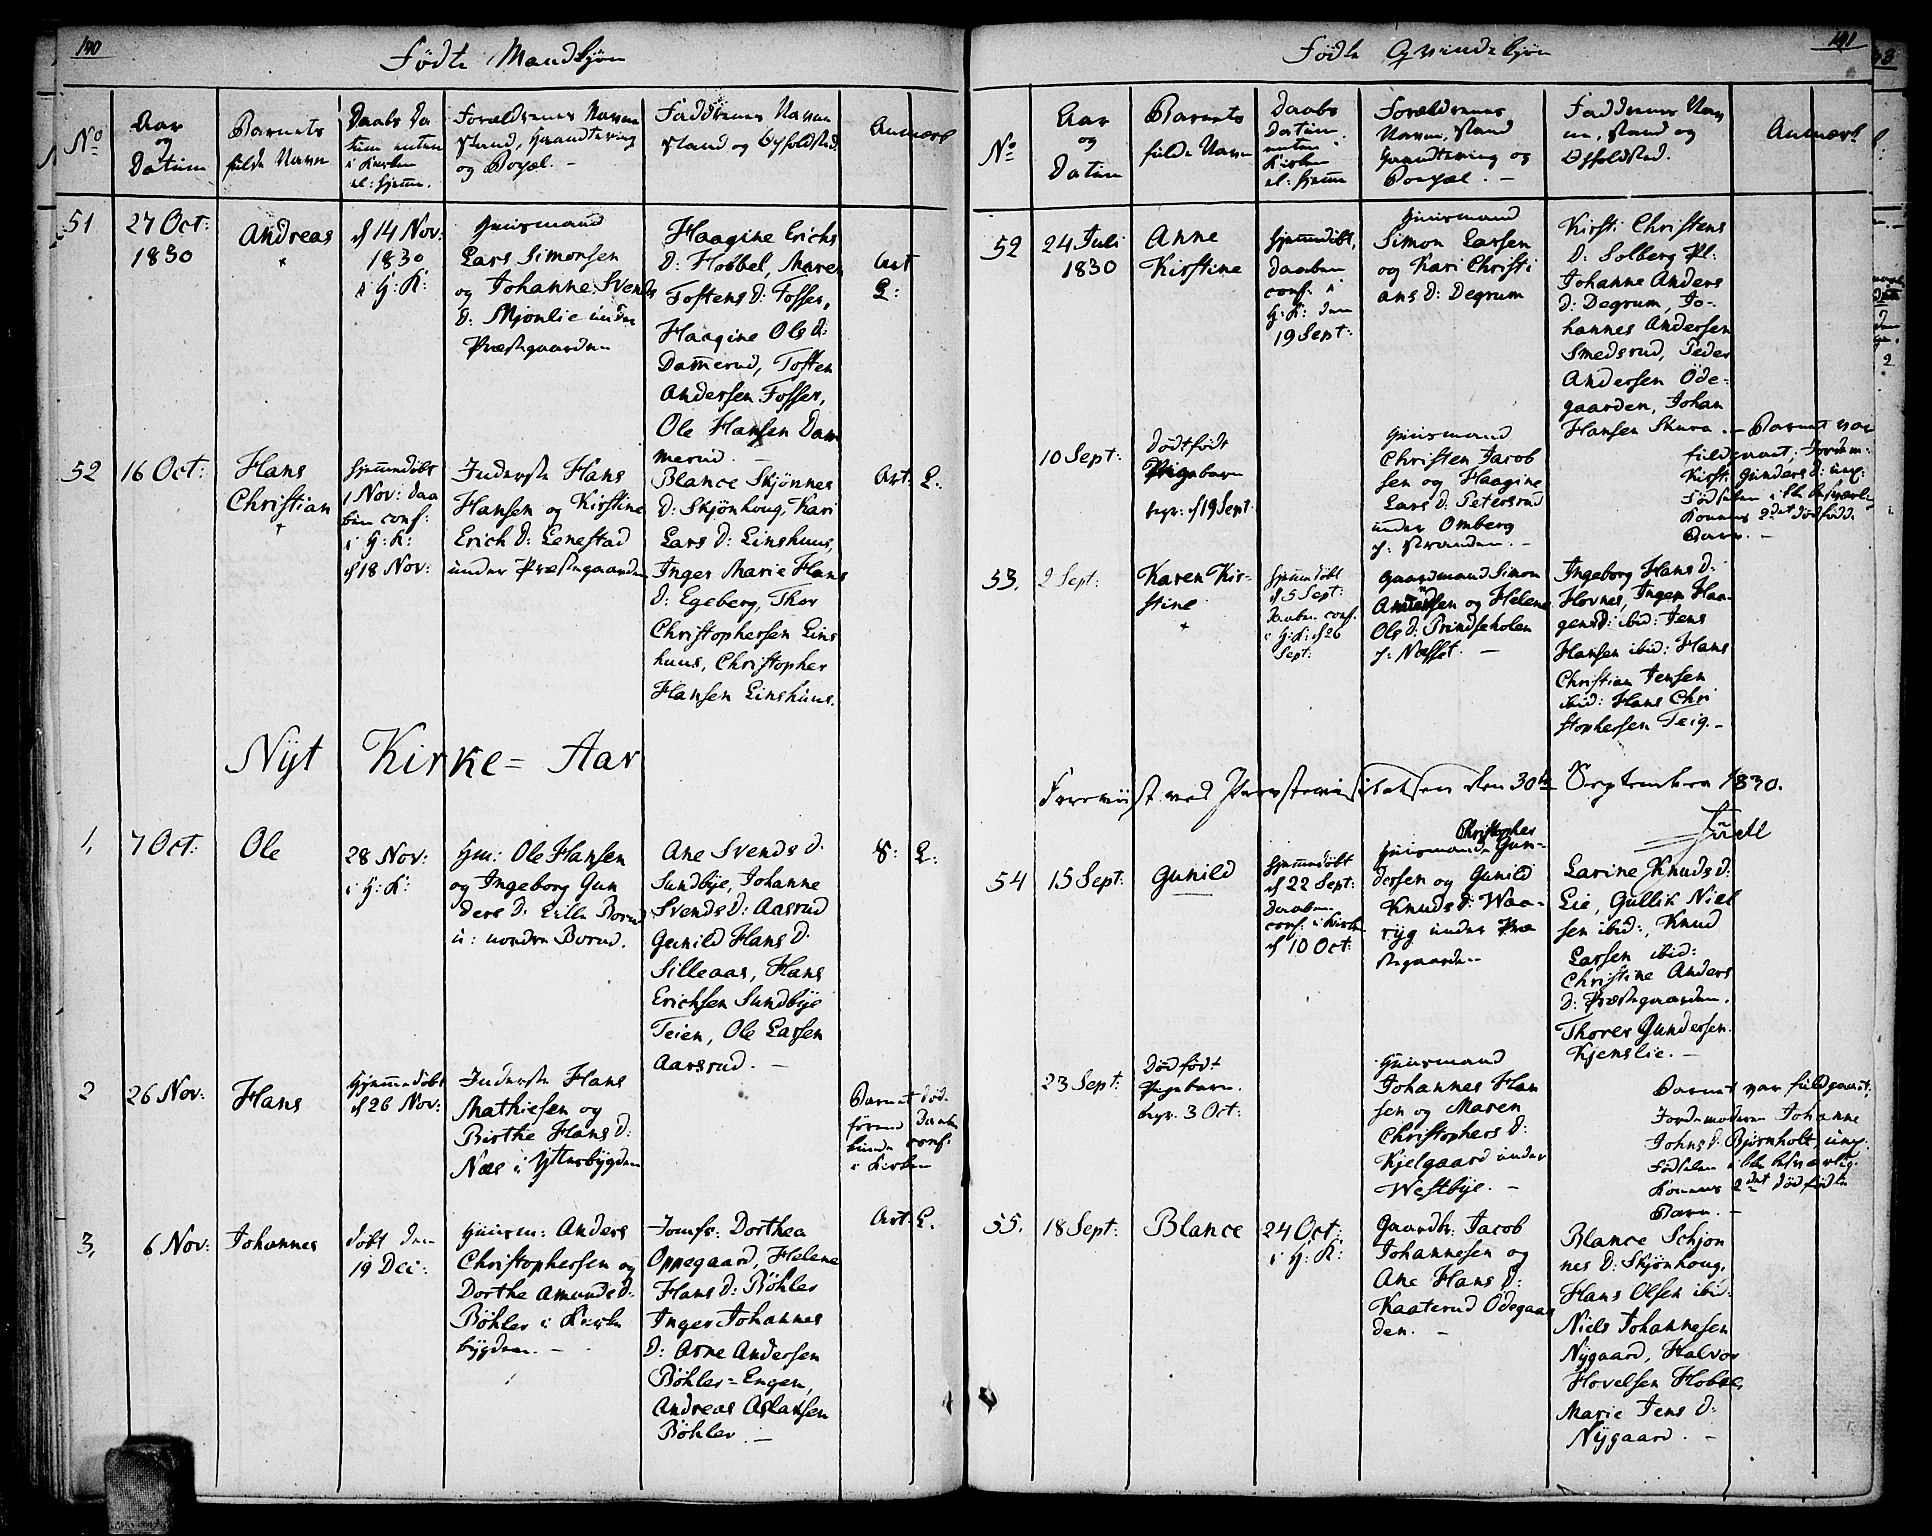 140
Fødte Mandkjøn
No
Aar
og
Datum
Barnets
fulde Navn
Daabs Da
tum enten
i Kirken
el: hjem̄e.
Forældrenes Navn
Stand, Haandtering
og Bopæl. —
Faddernes Navn
Stand og Opholdsted.
Anmærk
51
27 Oct:
1830
Andreas
+
d 14 Nov:
1830
i H: K:
Huusmand
Lars Simonsen
og Johanne Svends
D: Mjønlie under
Præstegaarden
Haagine Erichs
D: Hobbel, Maren
Tostens D: Fosser,
Haagine Ols D:
Dam̄erud, Tosten
Andersen Fosser,
Ole Hansen Dam
merud. —
Art
L:
52
16 Oct:
Hans
Christian
+
hjem̄edøbt
1 Nov: Daa
ben conf:
i H: K:
d 18 Nov:
Inderste Hans
Hansen og Kirstine
Erich D: Lenestad
under Præstegaarden
Blance Skjønnes
D: Skjønhoug, Kari
Lars D: Linshuus,
Inger Marie Hans
D: Egeberg, Thor
Christophersen Lins
huus, Christopher
Hansen Linshuus.
Art. L:
Nyt Kirke= Aar
1,
7 Oct:
Ole
28 Nov:
i H: K:
Hm: Ole Hansen
og Ingeborg Gun
ders D: Lille Borud
u: nordre Borud.
Ane Svends D:
Sundbye, Johanne
Svends D: Aasrud
Gunild Hans D:
Silleaas, Hans
Erichsen Sundbye
Teien, Ole Larsen
Aarsrud. —
8: L:
2
26 Nov:
Hans
hjem̄edøbt
d 26 Nov:
Inderste Hans
Mathiesen og
Birthe Hans D:
Næs i Ytterbygden
Barnet død
førend Daaben
kunde conf:
i Kirken
3,
6 Nov:
Johannes
døbt den
19 Dec:
Huusm: Anders
Christophersen og
Dorthe Amunds D:
Bøhler i Kirke
bygden. —
Jomfr: Dorthea
Oppegaard, Helene
Hans D: Bøhler
Inger Johannes
D: Arne Andersen
Bøhler=Engen,
Andreas Aslaksen
Bøhler. —
Art. L.
141
Fødte Qvindekjøn
No
Aar
og
Datum
Barnets
fulde Navn
Daabs
Datum,
enten i
Kirken
el: hjem̄e
Forældrenes
Navn, Stand
Haandtering og
Bopæl. —
Faddernes Nav
ne, Stand og
Opholdsted.
Anmærk
52
24 Juli
1830
Anne
Kirstine
hjem̄edøbt,
Daaben
conf: i
H: K: den
19 Sept:
Huusmand
Simon Larsen
og Kari Christi
ans D: Degrum
Kirsti Christens
D: Solberg Pl:
Johanne Anders
D: Degrum, Jo-
hannes Andersen
Smedsrud, Peder
Andersen Öde-
gaarden, Johan
Hansen Skura. —
10 Sept:
dødfødt
Pigebarn
begr: d 19 Sept:
Huusmand
Christen Jacob
sen og Haagine
Lars D: Petersrud
under Omberg
i: Stranden. —
Barnet var
fuldbaaret, Jordm:
Kirsti Gunders D: ung:
Fødselen ikke besværlig
Konens 2det dødfødte
Barn. —
53.
2 Sept:
Karen Kir-
stine
+
hjem̄edøbt
d 5 Sept:
Daaben conf.
i H: K: d 26
Sept:
Gaardmand Simon
Andersen og Helene
Ols D: Prindseholen
i: Næsset. —
Ingeborg Hans D:
Hovnes, Inger Haa-
gens D: ibid: Jens
Hansen ibid: Hans
Christian Jensen
ibid: Hans Chri
stophersen Teig. —
Foreviist ved Provstevisitatsen den 30te September 1830.
54
15 Sept:
Gunild
hjem̄edøbt
d 22 Sept:
Daaben
conf: i Kirken
d 10 Oct:
Christopher
Huusmand Gun-
dersen og Gunild
Knuds D: Waa-
ryg under Præ
stegaarden
Larine Knuds D:
Lie, Gullik Niel
sen ibid:, Knud
Larsen ibid:
Christine Anders
D: Præstegaarden.
Thorer Gundersen
Kjenslie. —
23 Sept:
Dødfødt
Pigebarn.
begr. 3 Oct:
Huusmand
Johannes Han
sen og Maren
Christophers D:
Kjelgaard under
Westbye. —
Barnet var fuldbaaret;
Jordmoderen Johanne
Johns D: Bjørnholt ung:
Fødselen ikke besværlig.
Konens 2det dødfødte
Barn. —
55.
18 Sept:
Blance
24 Oct:
i H: K:
Gaardbr: Jacob
Johannesen og
Ane Hans D:
Kaaterud Ödegaar
den. —
Blance Schjøn
nes D: Skjønhoug,
Hans Olsen ibid:
Niels Johannesen
Nygaard, Halvor
Hovelsen Hobbel,
Marie Jens D:
Nygaard. —